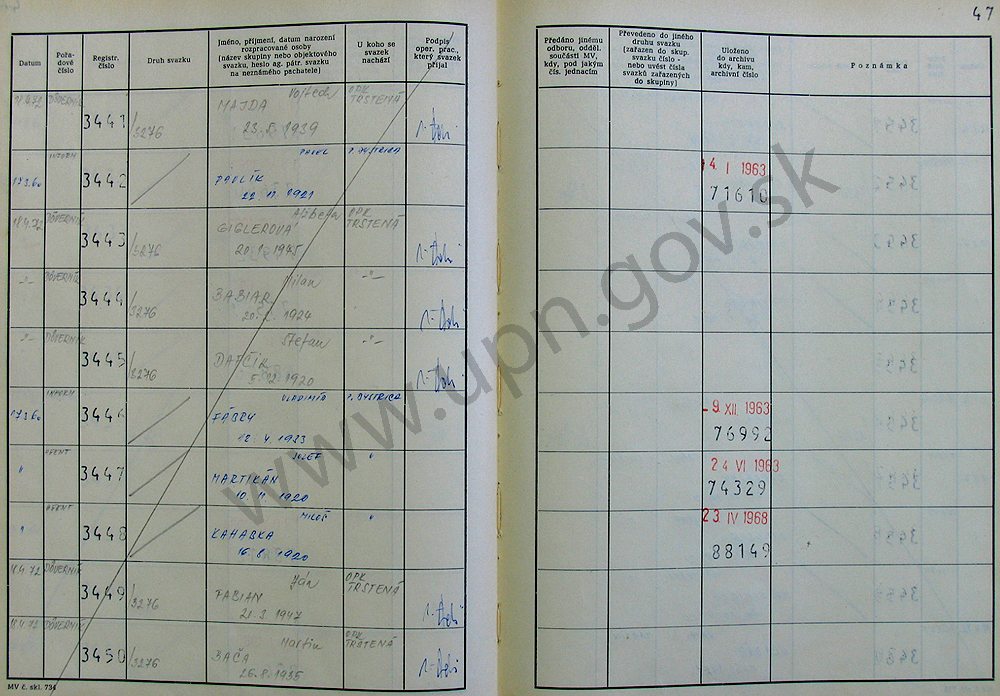 47
Datum
Pořa-
dové
číslo
Registr.
číslo
Druh svazku
Jméno, příjmení, datum narození
rozpracované osoby
(název skupiny nebo objektového
svazku, heslo ag. pátr. svazku
na neznámého pachatele)
U koho se
svazek
nachází
Podpis
oper. prac.,
který svazek
přijal
Předáno jinému
odboru, odděl.
součásti MV,
kdy, pod jakým
čís. jednacím
Převedeno do jiného
druhu svazku
(zařazen do skup.
svazku číslo -
nebo uvést čísla
svazků zařazených
do skupiny)
Uloženo
do archivu
kdy, kam,
archivní číslo
Poznámka
DÔVERNÍK 3441 /3276 Vojtech OPK
MAJDA TRSTENÁ
23. 5. 1939
INFORM PAVEL B. BYSTRICA
17.3.60 3442 PAVLÍK 4. I 1963
22. 11. 1921 71610
18.4.72 DÔVERNÍK Alžbeta OPK
3443 /3276 GIGLEROVÁ TRSTENÁ
1945
-"- DÔVERNÍK Milan -"-
3444 /3276 BABIAR
1924
-"- DÔVERNÍK Štefan -"-
3445 /3276
1920
INFORM VLADIMÍR B. BYSTRICA
17.3.60 3446 FÁBRY - 9. XII. 1963
12. V. 1923 76992
AGENT JOZEF "
" 3447 MARTIKÁN 24 VI 1963
10. 11. 1920 74329
AGENT MILOŠ "
" 3448 KAHABKA 23 IV 1968
16. 8. 1920 88149
18.4.72 DÔVERNÍK Ján OPK
3449 /3276 FABIAN TRSTENÁ
21. 3. 1947
18.4.72 DÔVERNÍK Martin OPK
3450 /3276 BAČA TRSTENÁ
26. 8. 1935
MV č. skl. 734
www.upn.gov.sk